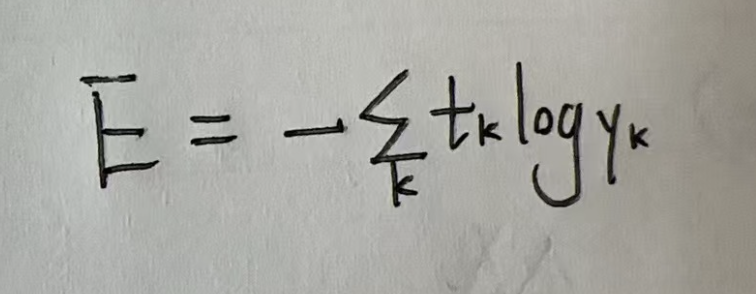 E = -∑_k t_k log y_k